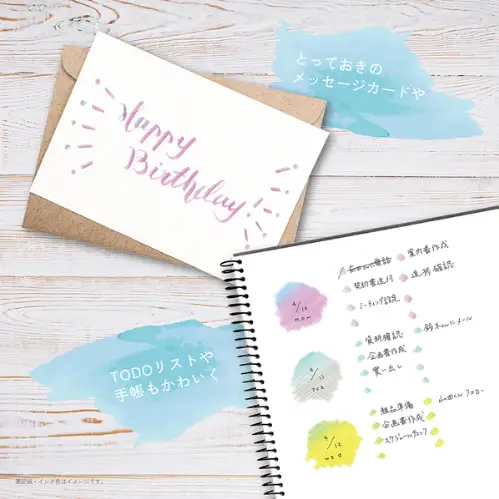 とっておきの
メッセージカードや
Happy
Birthday
案内書作成
契約書送付
進捗確認
ミーティング設定
4/12
mon
資料確認
鈴木さんにメール
企画書作成
買い出し
4/13
TUE
粗品準備
山田さんフォロー
企画書作成
スケジュールチェック
4/12
WED
TODOリストや
手帳もかわいく
筆記線・インク色はイメージです。